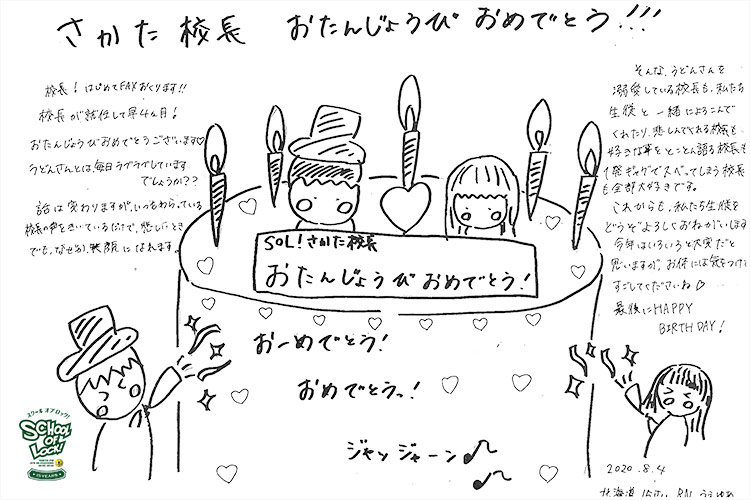 さかた校長 おたんじょうび おめでとう!!!
校長!はじめてFAXおくります!!
校長が就任して早4ヵ月!
おたんじょうびおめでとうございます♡
うどんさんとは、毎日ラブラブしています
でしょうか??
話は変わりますが、いつもわらっている
校長の声をきいているだけで、悲しいとき
でも、なぜか笑顔になれます。
そんな、うどんさんを
溺愛している校長も、私たち
生徒と一緒によろこんで
くれたり、悲しんでくれる校長も
好きな事をとことん語る校長も
1発ギャグでスベってしまう校長
も全部大好きです。
これからも、私たち生徒を
どうぞよろしくおねがいします
今年はいろいろと大変だと
思いますが、お体には気をつけて
すごしてくださいね♡
最後にHAPPY
BIRTHDAY!
SOL!さかた校長
おたんじょうび おめでとう!
おーめでとう!
おめでとうっ!
ジャンジャーン♪
スクール オブ ロック!
SCHOOL OF LOCK!
15 YEARS
2020.8.4
北海道